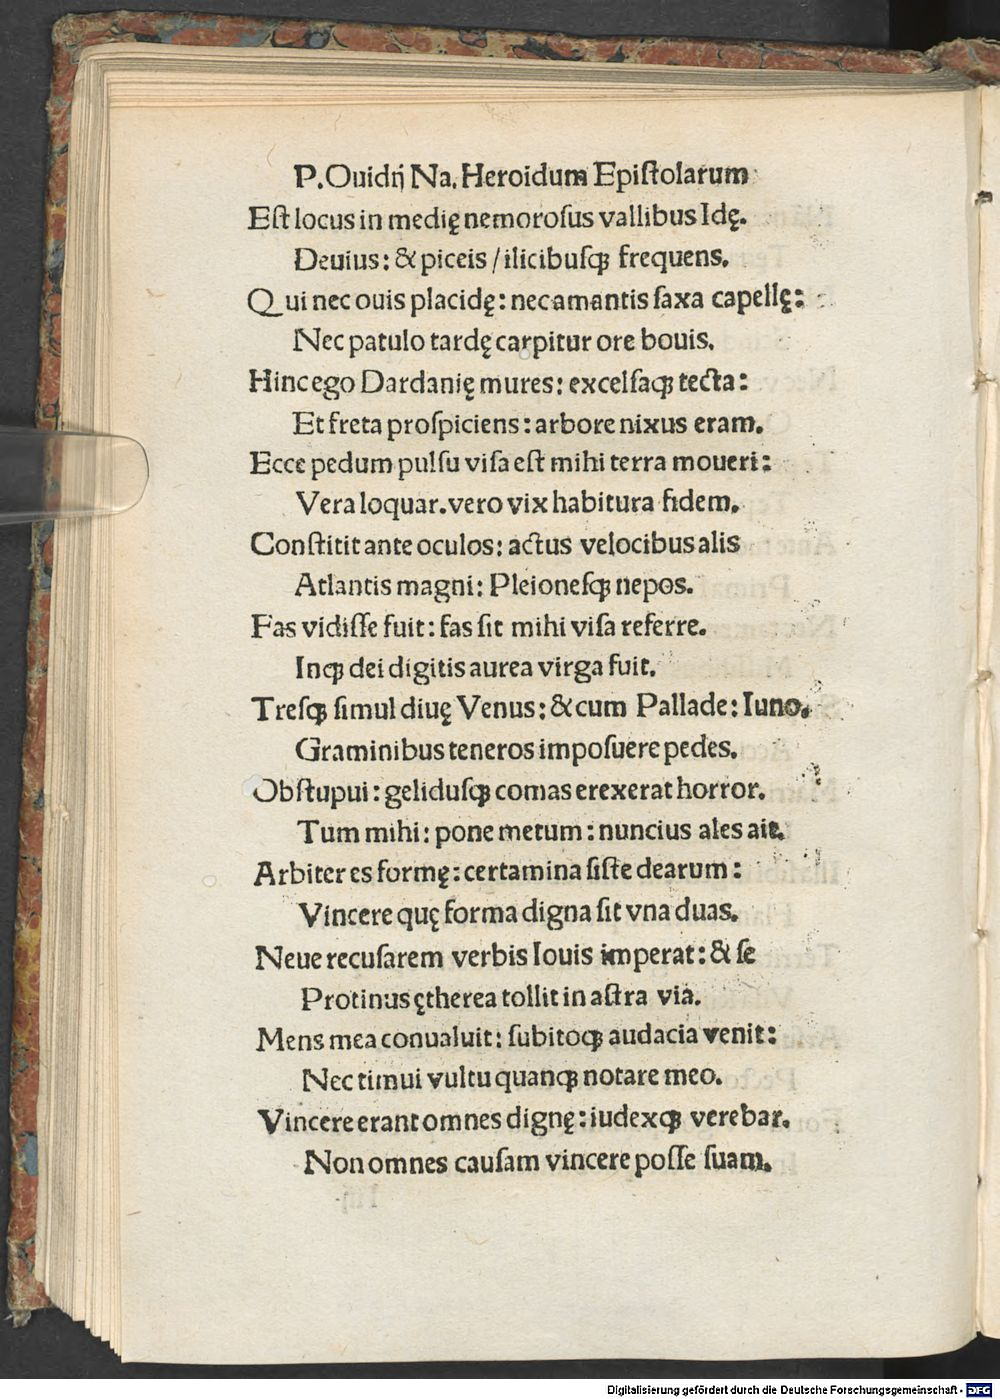 P.Ouidij Na. Heroidum Epiſtolarum
Eſt locus in medię nemoroſus vallibus Idę.
Deuius: & piceis / ilicibuſqꝫ frequens.
Qui nec ouis placidę: nec amantis ſaxa capellę:
Nec patulo tardę carpitur ore bouis.
Hinc ego Dardanię mures: excelſaqꝫ tecta:
Et freta proſpiciens: arbore nixus eram.
Ecce pedum pulſu viſa eſt mihi terra moueri:
Vera loquar. vero vix habitura fidem.
Conſtitit ante oculos: actus velocibus alis
Atlantis magni: Pleioneſqꝫ nepos.
Fas vidiſſe fuit: fas ſit mihi viſa referre.
Inqꝫ dei digitis aurea virga fuit.
Treſqꝫ ſimul diuę Venus: & cum Pallade: Iuno.
Graminibus teneros impoſuere pedes.
Obſtupui: geliduſqꝫ comas erexerat horror.
Tum mihi: pone metum: nuncius ales ait.
Arbiter es formę: certamina ſiſte dearum:
Vincere quę forma digna ſit vna duas.
Neue recuſarem verbis Iouis imperat: & ſe
Protinus ętherea tollit in aſtra via.
Mens mea conualuit: ſubitoqꝫ audacia venit:
Nec timui vultu quanqꝫ notare meo.
Vincere erant omnes dignę: iudexqꝫ verebar.
Non omnes cauſam vincere poſſe ſuam.
Digitalisierung gefördert durch die Deutsche Forschungsgemeinschaft - DFG